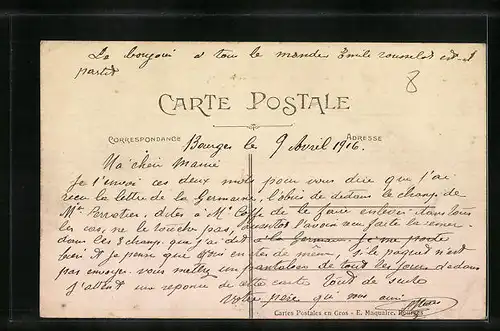 La bonjour a tout le monde Emile rousselot est-il
partit
8
CARTE POSTALE
CORRESPONDANCE
ADRESSE
Bourges le 9 Avril 1916.
Ma chere Mamie
Je t'envoi ces deux mots pour vous dire que j'ai
recu la lettre de la Germaine, l'obus de dedans le champ de
Mr Perrotier, dites à Mr Caffe de le faire enlever dans tous
les cas, ne le touche pas, l'avoir faite la remer
dans les 3 champs que j'ai dit a la Germaine je me porte
bien et je pense que vous en êtes de même, si le paquet n'est
pas envoyer vous mettez un pantalon de tout les jours dedans
J'attent une reponse de cette carte tout de suite
Votre père qui vous aime
Cartes Postales en Gros - E. Maquaire, Bourges